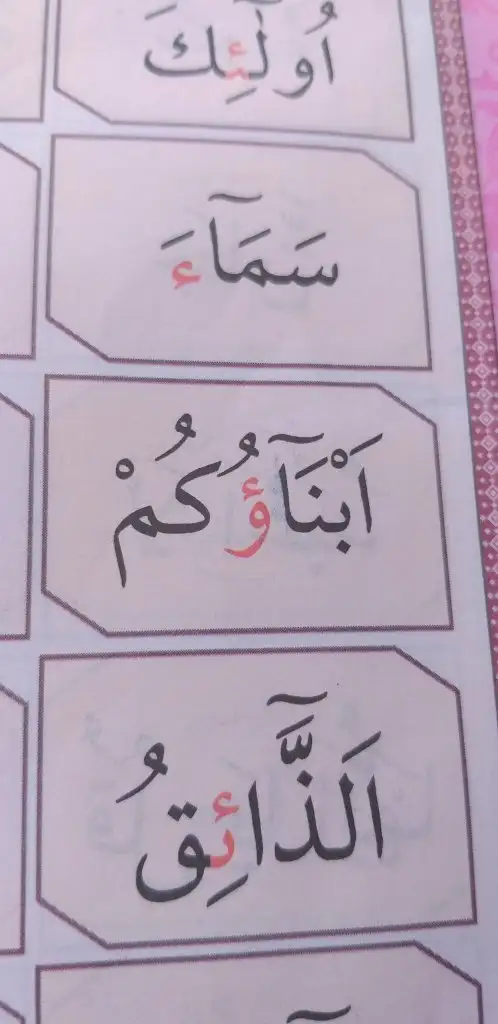 اُولٰٓئِكَ
سَمَآءَ
اَبْنَآؤُكُمْ
اَلذَّآئِقُ